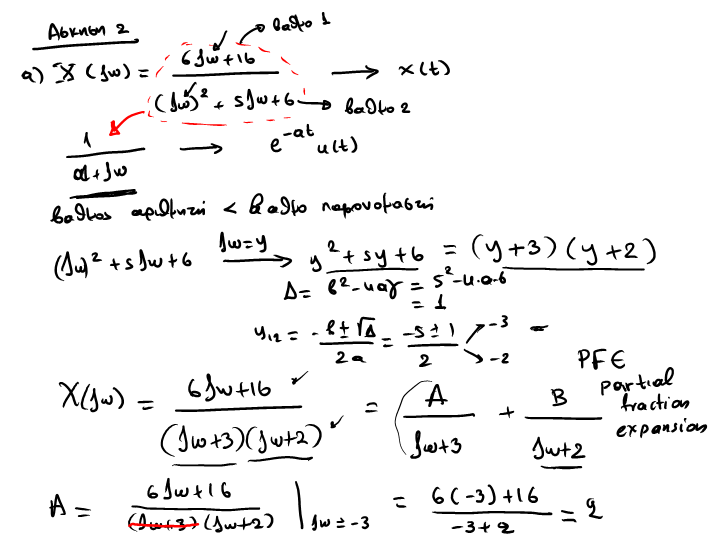 Άσκηση 2
βαθμο 1
α) X(jω) = (6jω+16) / ((jω)² + 5jω+6) → x(t)
βαθμο 2
1 / (α+jω) → e^{-αt} u(t)
βαθμος αριθμητή < βαθμο παρονομαστή
(jω)² + 5jω+6 jω=y → y² + 5y + 6 = (y+3)(y+2)
Δ = β²-4αγ = 5²-4·α·6
= 1
y₁₂ = (-β±√Δ) / 2α = (-5±1) / 2 → -3
→ -2
PFE
partial
fraction
expansion
X(jω) = (6jω+16) / ((jω+3)(jω+2)) = A / (jω+3) + B / (jω+2)
A = (6jω+16) / ((jω+3)(jω+2)) | jω=-3 = (6(-3)+16) / (-3+2) = 2